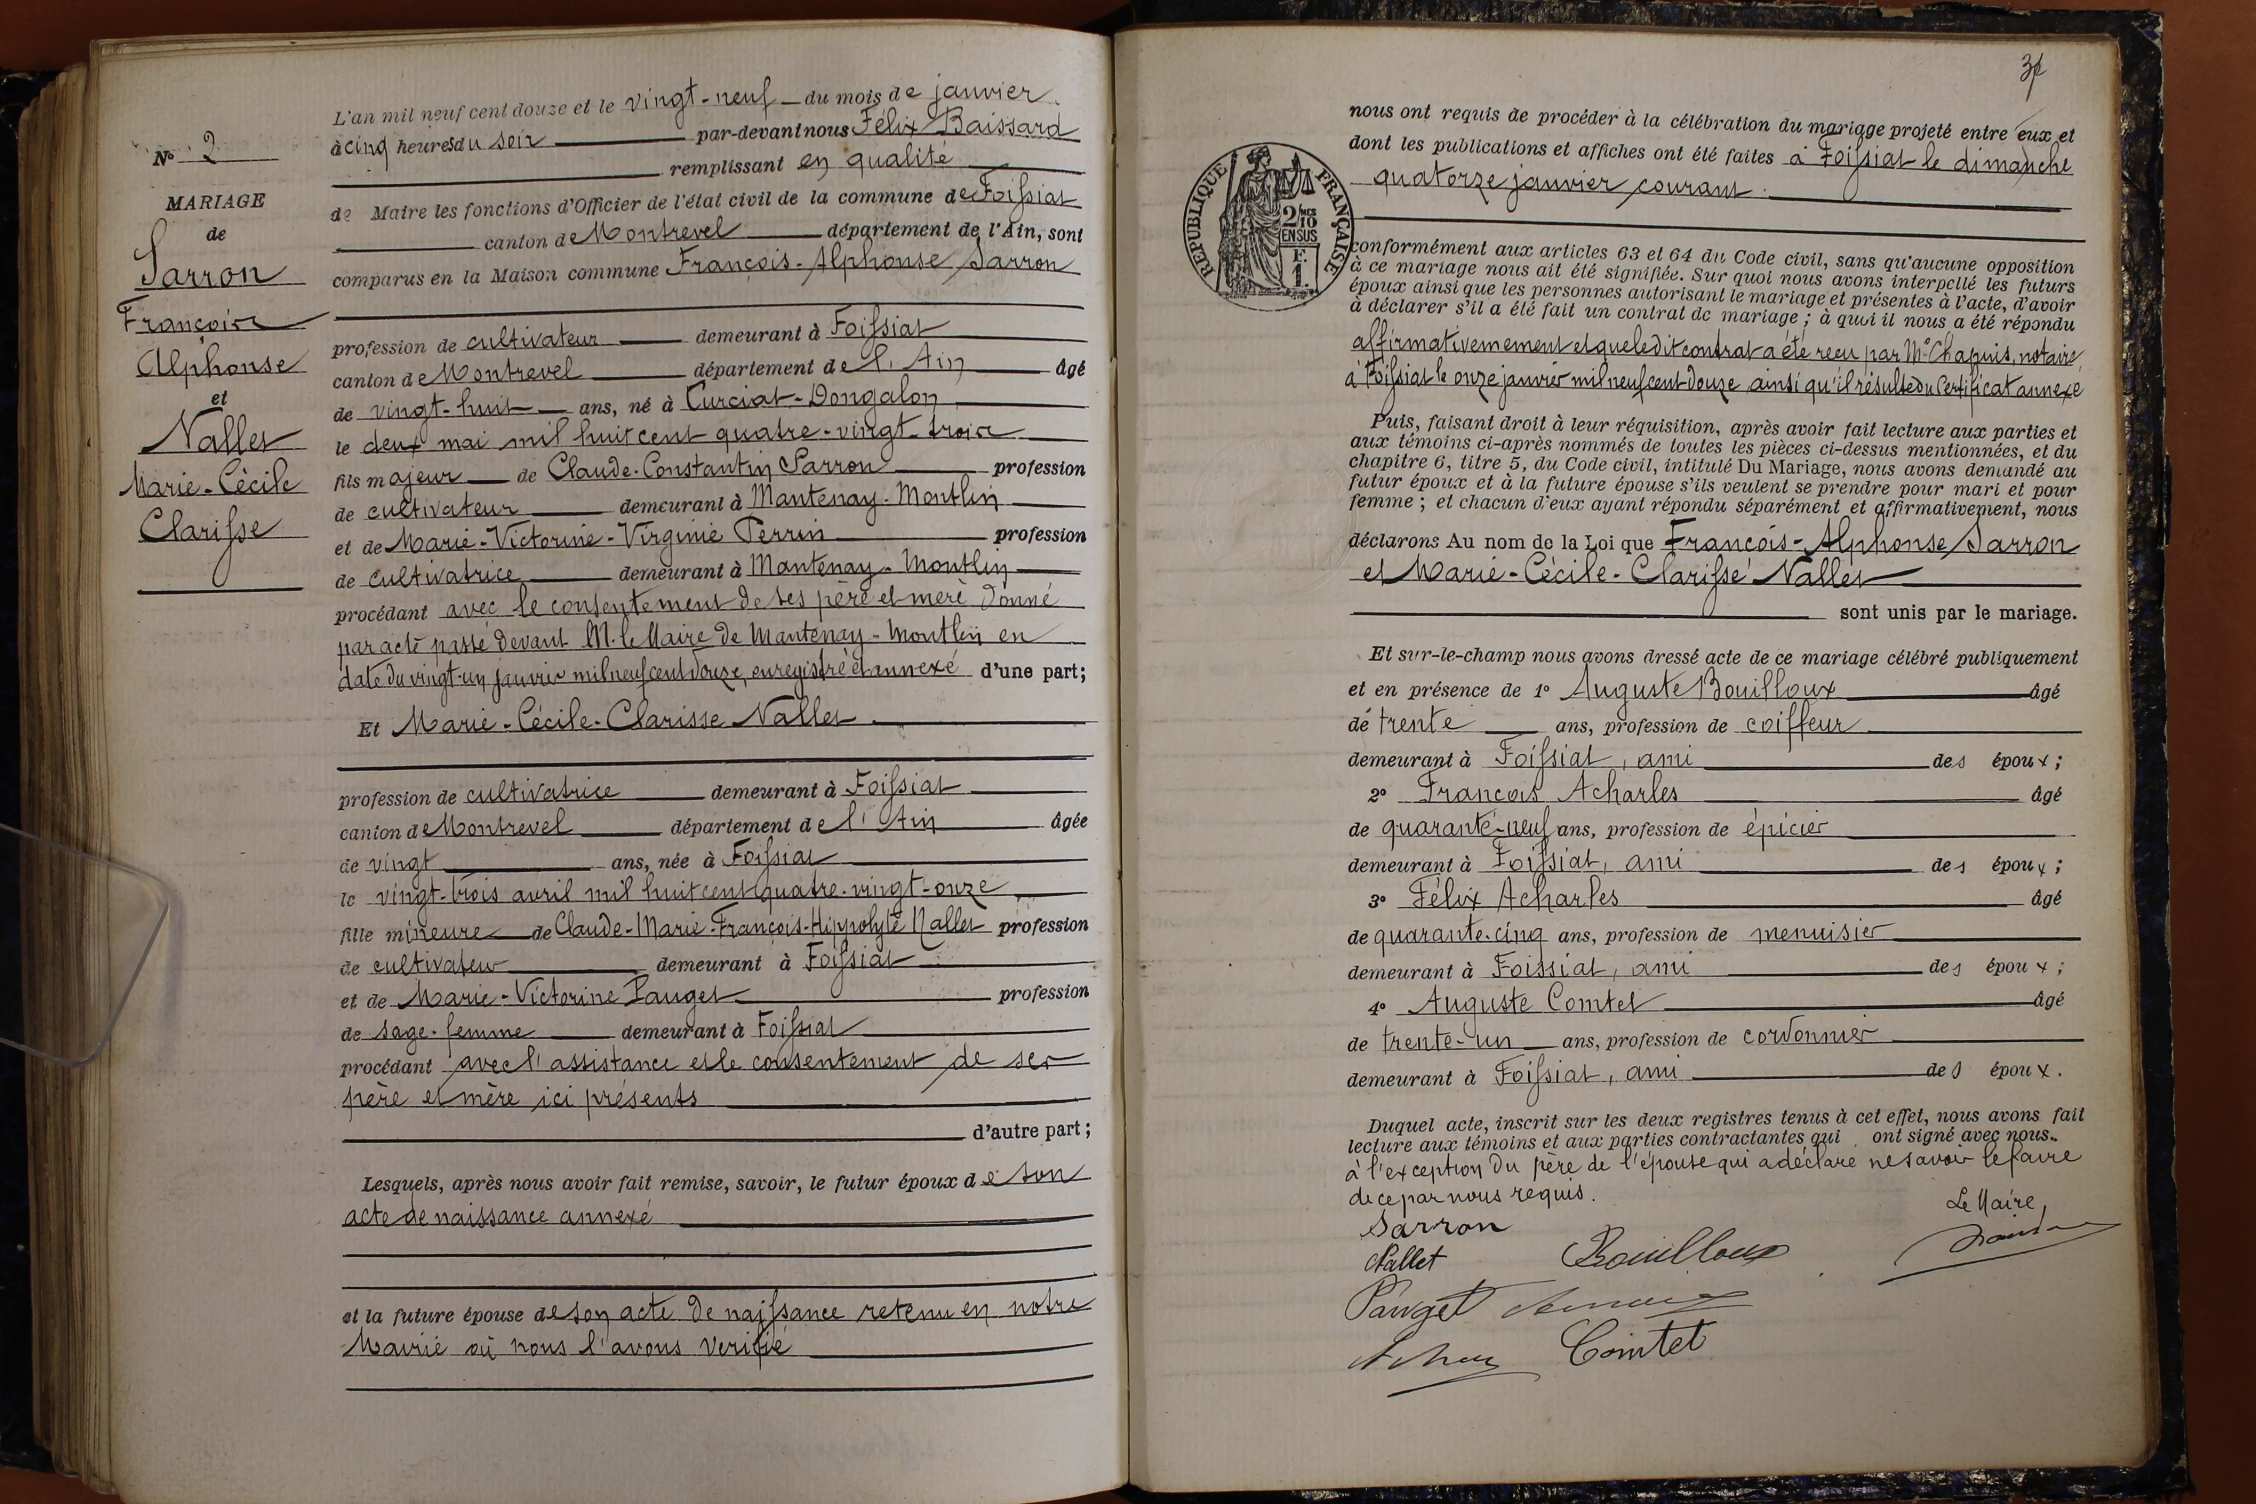 N° 2
MARIAGE
de
Sarron
François
Alphonse
et
Nallet
Marie-Cécile
Clarisse
L'an mil neuf cent douze et le vingt-neuf du mois de janvier
à cinq heures du soir par-devant nous Félix Baissard
remplissant en qualité
de Maire les fonctions d'Officier de l'état civil de la commune de Foissiat
canton de Montrevel département de l'Ain, sont
comparus en la Maison commune François-Alphonse Sarron
profession de cultivateur demeurant à Foissiat
canton de Montrevel département de l'Ain âgé
de vingt-huit ans, né à Curciat-Dongalon
le deux mai mil huit cent quatre-vingt-trois
fils majeur de Claude-Constantin Sarron profession
de cultivateur demeurant à Mantenay-Montlin
et de Marie-Victorine-Virginie Perrin profession
de cultivatrice demeurant à Mantenay-Montlin
procédant avec le consentement de ses père et mère donné
par acte passé devant M. le Maire de Mantenay-Montlin en
date du vingt-un janvier mil neuf cent douze, enregistré et annexé d'une part;
Et Marie-Cécile-Clarisse Nallet
profession de cultivatrice demeurant à Foissiat
canton de Montrevel département de l'Ain âgée
de vingt ans, née à Foissiat
le vingt-trois avril mil huit cent quatre-vingt-onze
fille mineure de Claude-Marie-François-Hippolyte Nallet profession
de cultivateur demeurant à Foissiat
et de Marie-Victorine Pauget profession
de sage-femme demeurant à Foissiat
procédant avec l'assistance et le consentement de ses
père et mère ici présents
d'autre part;
Lesquels, après nous avoir fait remise, savoir, le futur époux de son
acte de naissance annexé
et la future épouse de son acte de naissance retenu en notre
Mairie où nous l'avons vérifié
REPUBLIQUE FRANÇAISE
2/10
EN SUS
F.
1.
nous ont requis de procéder à la célébration du mariage projeté entre eux et
dont les publications et affiches ont été faites à Foissiat le dimanche
quatorze janvier courant.
conformément aux articles 63 et 64 du Code civil, sans qu'aucune opposition
à ce mariage nous ait été signifiée. Sur quoi nous avons interpellé les futurs
époux ainsi que les personnes autorisant le mariage et présentes à l'acte, d'avoir
à déclarer s'il a été fait un contrat de mariage; à quoi il nous a été répondu
affirmativemement et que le dit contrat a été reçu par Me Chapuis, notaire
à Foissiat le onze janvier mil neuf cent douze ainsi qu'il résulte du Certificat annexé
Puis, faisant droit à leur réquisition, après avoir fait lecture aux parties et
aux témoins ci-après nommés de toutes les pièces ci-dessus mentionnées, et du
chapitre 6, titre 5, du Code civil, intitulé Du Mariage, nous avons demandé au
futur époux et à la future épouse s'ils veulent se prendre pour mari et pour
femme; et chacun d'eux ayant répondu séparément et affirmativement, nous
déclarons Au nom de la Loi que François-Alphonse Sarron
et Marie-Cécile-Clarisse Nallet
sont unis par le mariage.
Et sur-le-champ nous avons dressé acte de ce mariage célébré publiquement
et en présence de 1° Auguste Bouilloux âgé
de trente ans, profession de coiffeur
demeurant à Foissiat, ami des époux;
2° François Acharles âgé
de quarante-neuf ans, profession de épicier
demeurant à Foissiat, ami des époux;
3° Félix Acharles âgé
de quarante-cinq ans, profession de menuisier
demeurant à Foissiat, ami des époux;
4° Auguste Comtet âgé
de trente-un ans, profession de cordonnier
demeurant à Foissiat, ami des époux.
Duquel acte, inscrit sur les deux registres tenus à cet effet, nous avons fait
lecture aux témoins et aux parties contractantes qui ont signé avec nous.
à l'exception du père de l'épouse qui a déclaré ne savoir le faire
de ce par nous requis.
Le Maire,
Sarron
Nallet Bouilloux
Pauget
Comtet